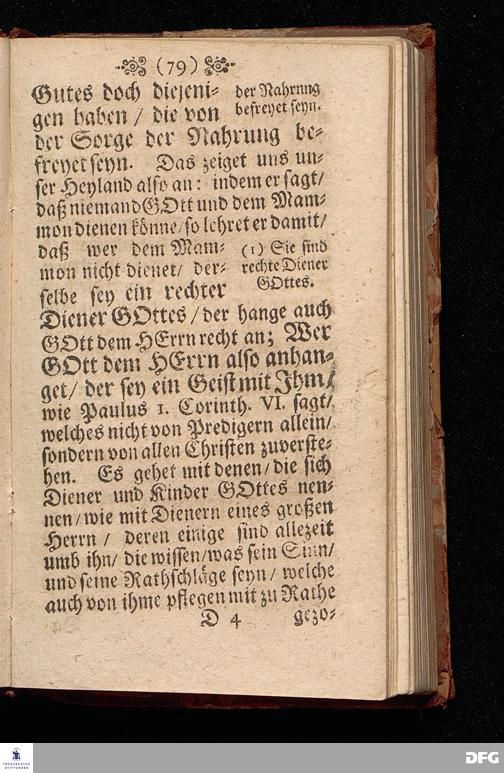 (79)
Gutes doch diejeni-
gen haben / die von
der Nahrung
befreyet seyn.
der Sorge der Nahrung be-
freyet seyn. Das zeiget uns un-
ser Heyland also an: indem er sagt/
daß niemand GOtt und dem Mam-
mon dienen könne/ so lehret er damit/
daß wer dem Mam-
mon nicht dienet/ der-
selbe sey ein rechter
(1) Sie sind
rechte Diener
GOttes.
Diener GOttes / der hange auch
GOtt dem HErrn recht an; Wer
GOtt dem HErrn also anhan-
get/ der sey ein Geist mit Ihm/
wie Paulus 1. Corinth. VI. sagt/
welches nicht von Predigern allein/
sondern von allen Christen zuverste-
hen. Es gehet mit denen/ die sich
Diener und Kinder GOttes nen-
nen/ wie mit Dienern eines großen
Herrn / deren einige sind allezeit
umb ihn/ die wissen/ was sein Sinn/
und seine Rathschläge seyn/ welche
auch von ihme pflegen mit zu Rathe
D 4 gezo-
FRANCKESCHE
STIFTUNGEN
DFG